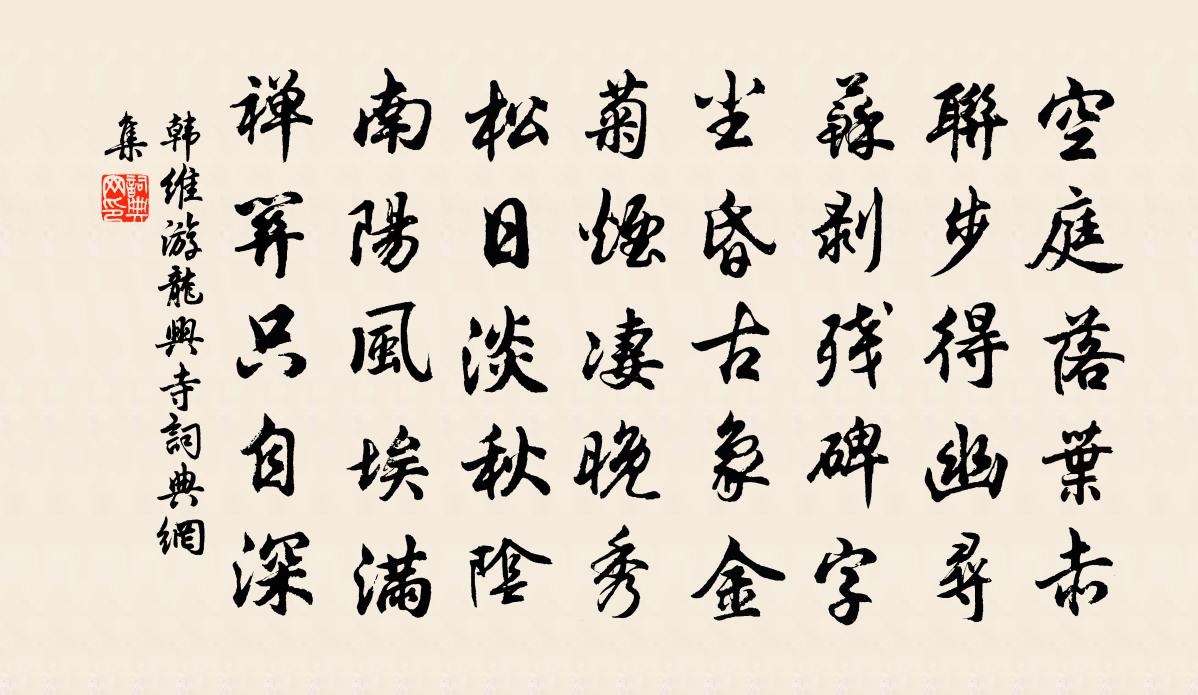 空庭落葉赤
聯步得幽尋
蘚剥残碑字
尘昏古象金
菊煙凄晚秀
松日淡秋陰
南陽風埃满
禅関只自深
韩維游龍興寺詞典網
集
詞典
网印